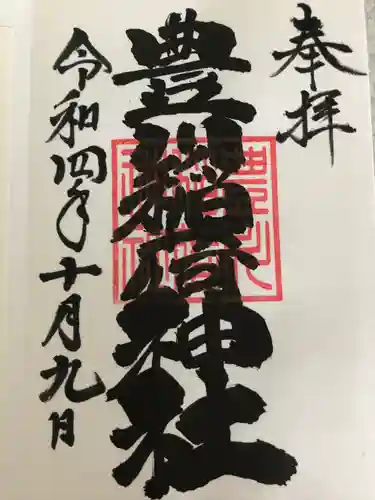 奉拝
豊川稲荷神社
令和四年十月九日